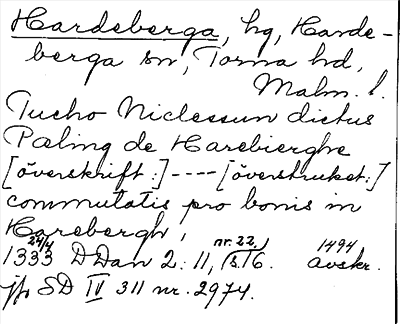 Hardeberga, hg, Harde-
berga sn, Torna hd,
Malm. l.
Tucho Niclessun dictus
Pæling de Harebierghe
[överskrift:]----[överstruket:]
commutatis pro bonis in
Harebergh,
24/4 nr. 22. 1494
1333 DDan 2:11, s. 16. avskr.
jfr SD IV 311 nr. 2974.